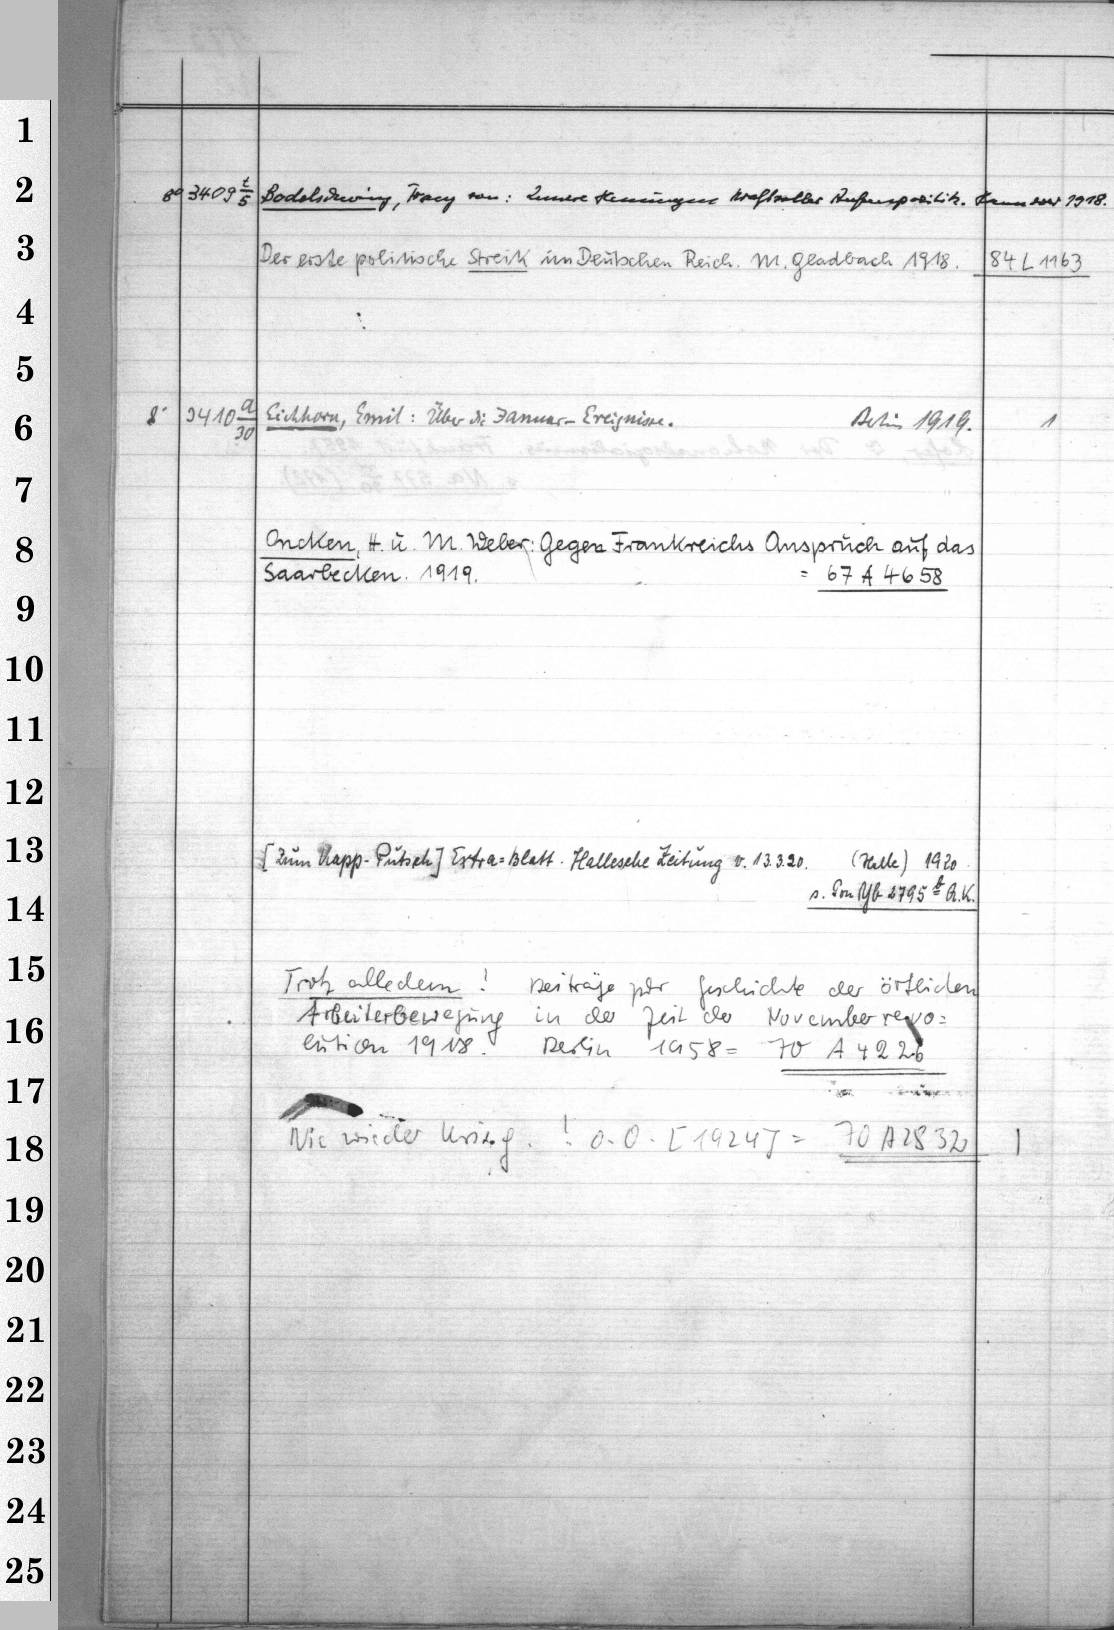 1
2
8° 3409 t/5 Bodelschwing, Franz von: Innere Hemmungen kraftvoller Außenpolitik. Hannover 1918.
3
Der erste politische Streik im Deutschen Reich. M. Gladbach 1918. 84 L 1163
4
5
6
8° 3410 a/30 Eichhorn, Emil: Über die Januar-Ereignisse. Berlin 1919. 1
7
8
Oncken, H. u. M. Weber: Gegen Frankreichs Anspruch auf das
Saarbecken. 1919. = 67 A 4658
9
10
11
12
13
[Zum Kapp-Putsch] Extra=Blatt. Hallesche Zeitung v. 13.3.20. (Halle) 1920
14
s. Pon Yb 2795 R.K.
15
Trotz alledem! Beiträge zur Geschichte der örtlichen
16
Arbeiterbewegung in der Zeit der Novemberrevo=
lution 1918. Berlin 1958 = 70 A 4226
17
18
Nie wieder Krieg! o. O. [1924] = 70 A 2832 1
19
20
21
22
23
24
25